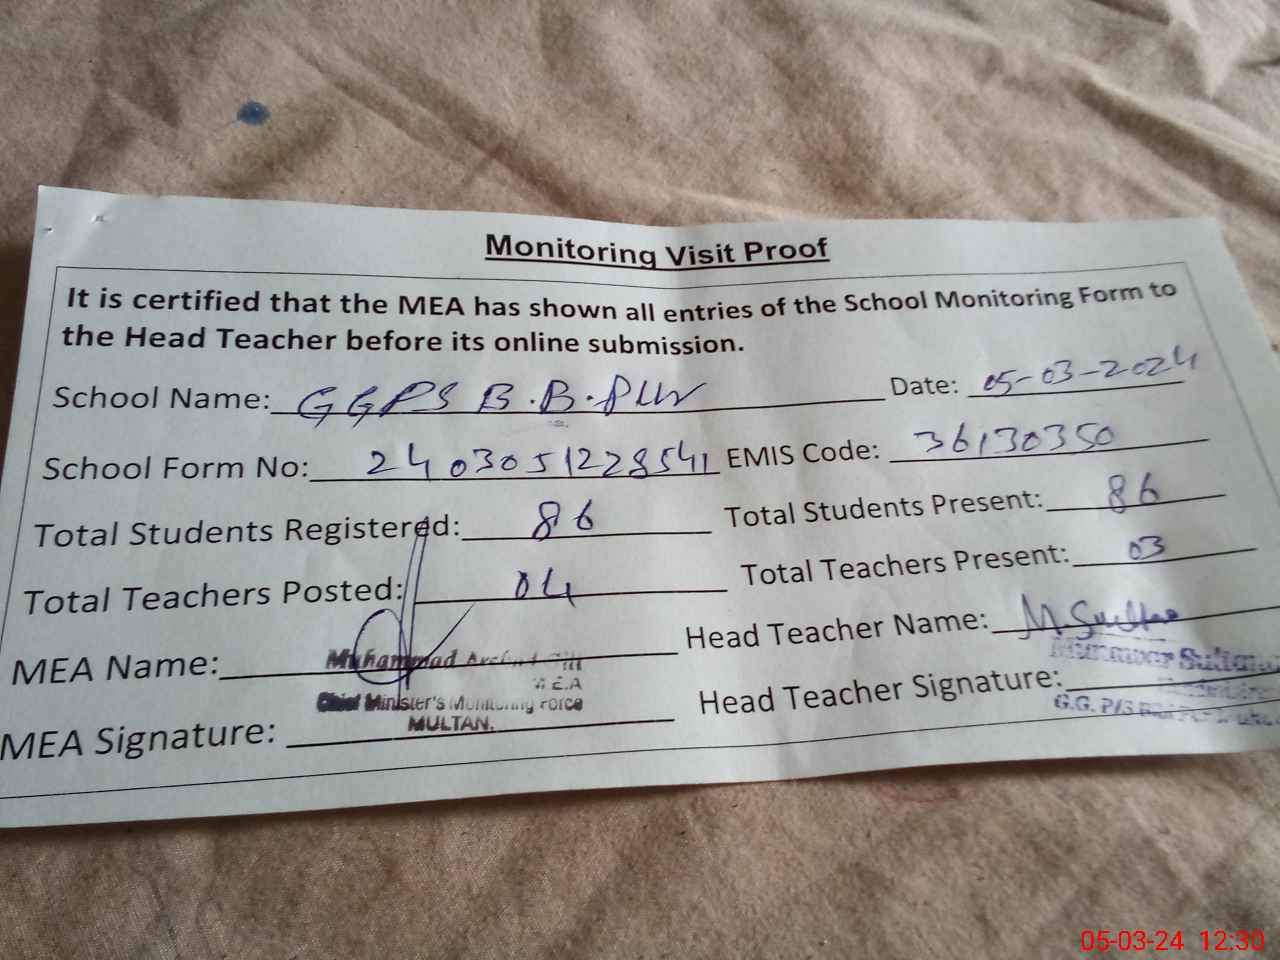 Monitoring Visit Proof
It is certified that the MEA has shown all entries of the School Monitoring Form to
the Head Teacher before its online submission.
School Name: GGPS B.B.PUR Date: 05-03-2024
School Form No: 2403051228541 EMIS Code: 36130350
Total Students Registered: 86 Total Students Present: 86
Total Teachers Posted: 04 Total Teachers Present: 03
MEA Name: Muhammad Head Teacher Name: M.Sultan
M.E.A
Chief Minister's Monitoring Force
MULTAN.
MEA Signature: Head Teacher Signature:
Sultan
G.G. P/S
05-03-24 12:30